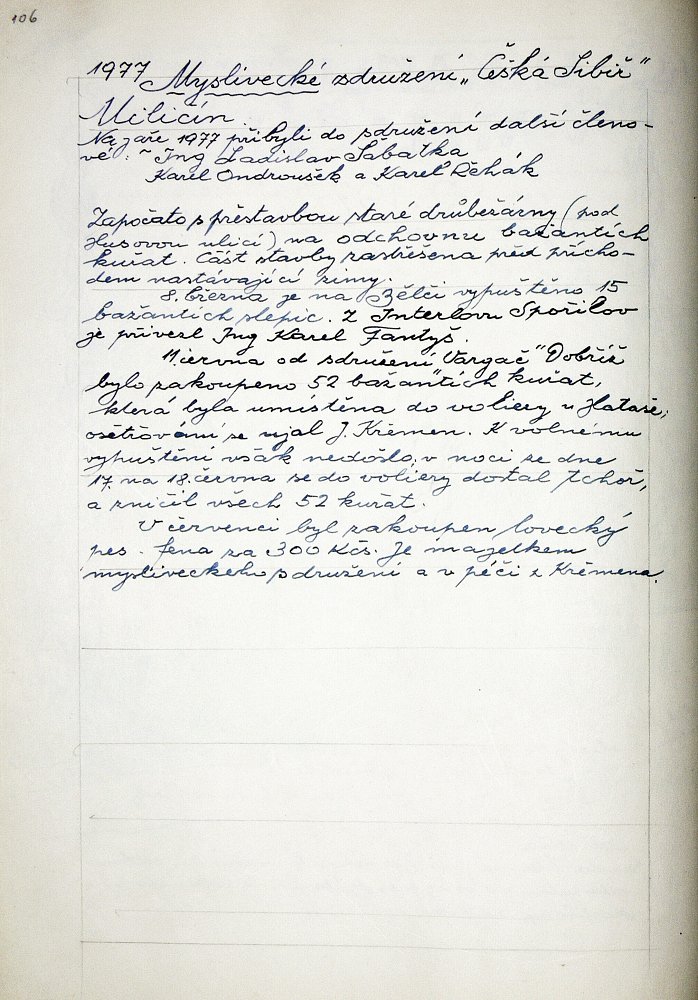 106
1977 Myslivecké sdružení „Česká Sibiř"
Miličín.
Na jaře 1977 přibyli do sdružení další členo-
vé: Ing Ladislav Šabatka
Karel Ondroušek a Karel Řehák
Započato s přestavbou staré drůbežárny (pod
Husovou ulicí) na odchovnu bažantích
kuřat. Část stavby zastřešena před přícho-
dem nastávající zimy.
8. března je na Zělči vypuštěno 15
bažantích slepic. Z Interlovu Spořilov
je přivezl Ing Karel Fantyš.
11. června od sdružení „Vargač" Dobříš
bylo zakoupeno 52 bažantích kuřat,
která byla umístěna do voliery u Hataše,
ošetřování se ujal J. Křemen. K volnému
vypuštění však nedošlo, v noci ze dne
17. na 18. června se do voliery dostal tchoř,
a zničil všech 52 kuřat.
V červenci byl zakoupen lovecký
pes. fena za 300 Kčs. Je majetkem
mysliveckého sdružení a v péči z Křemena.